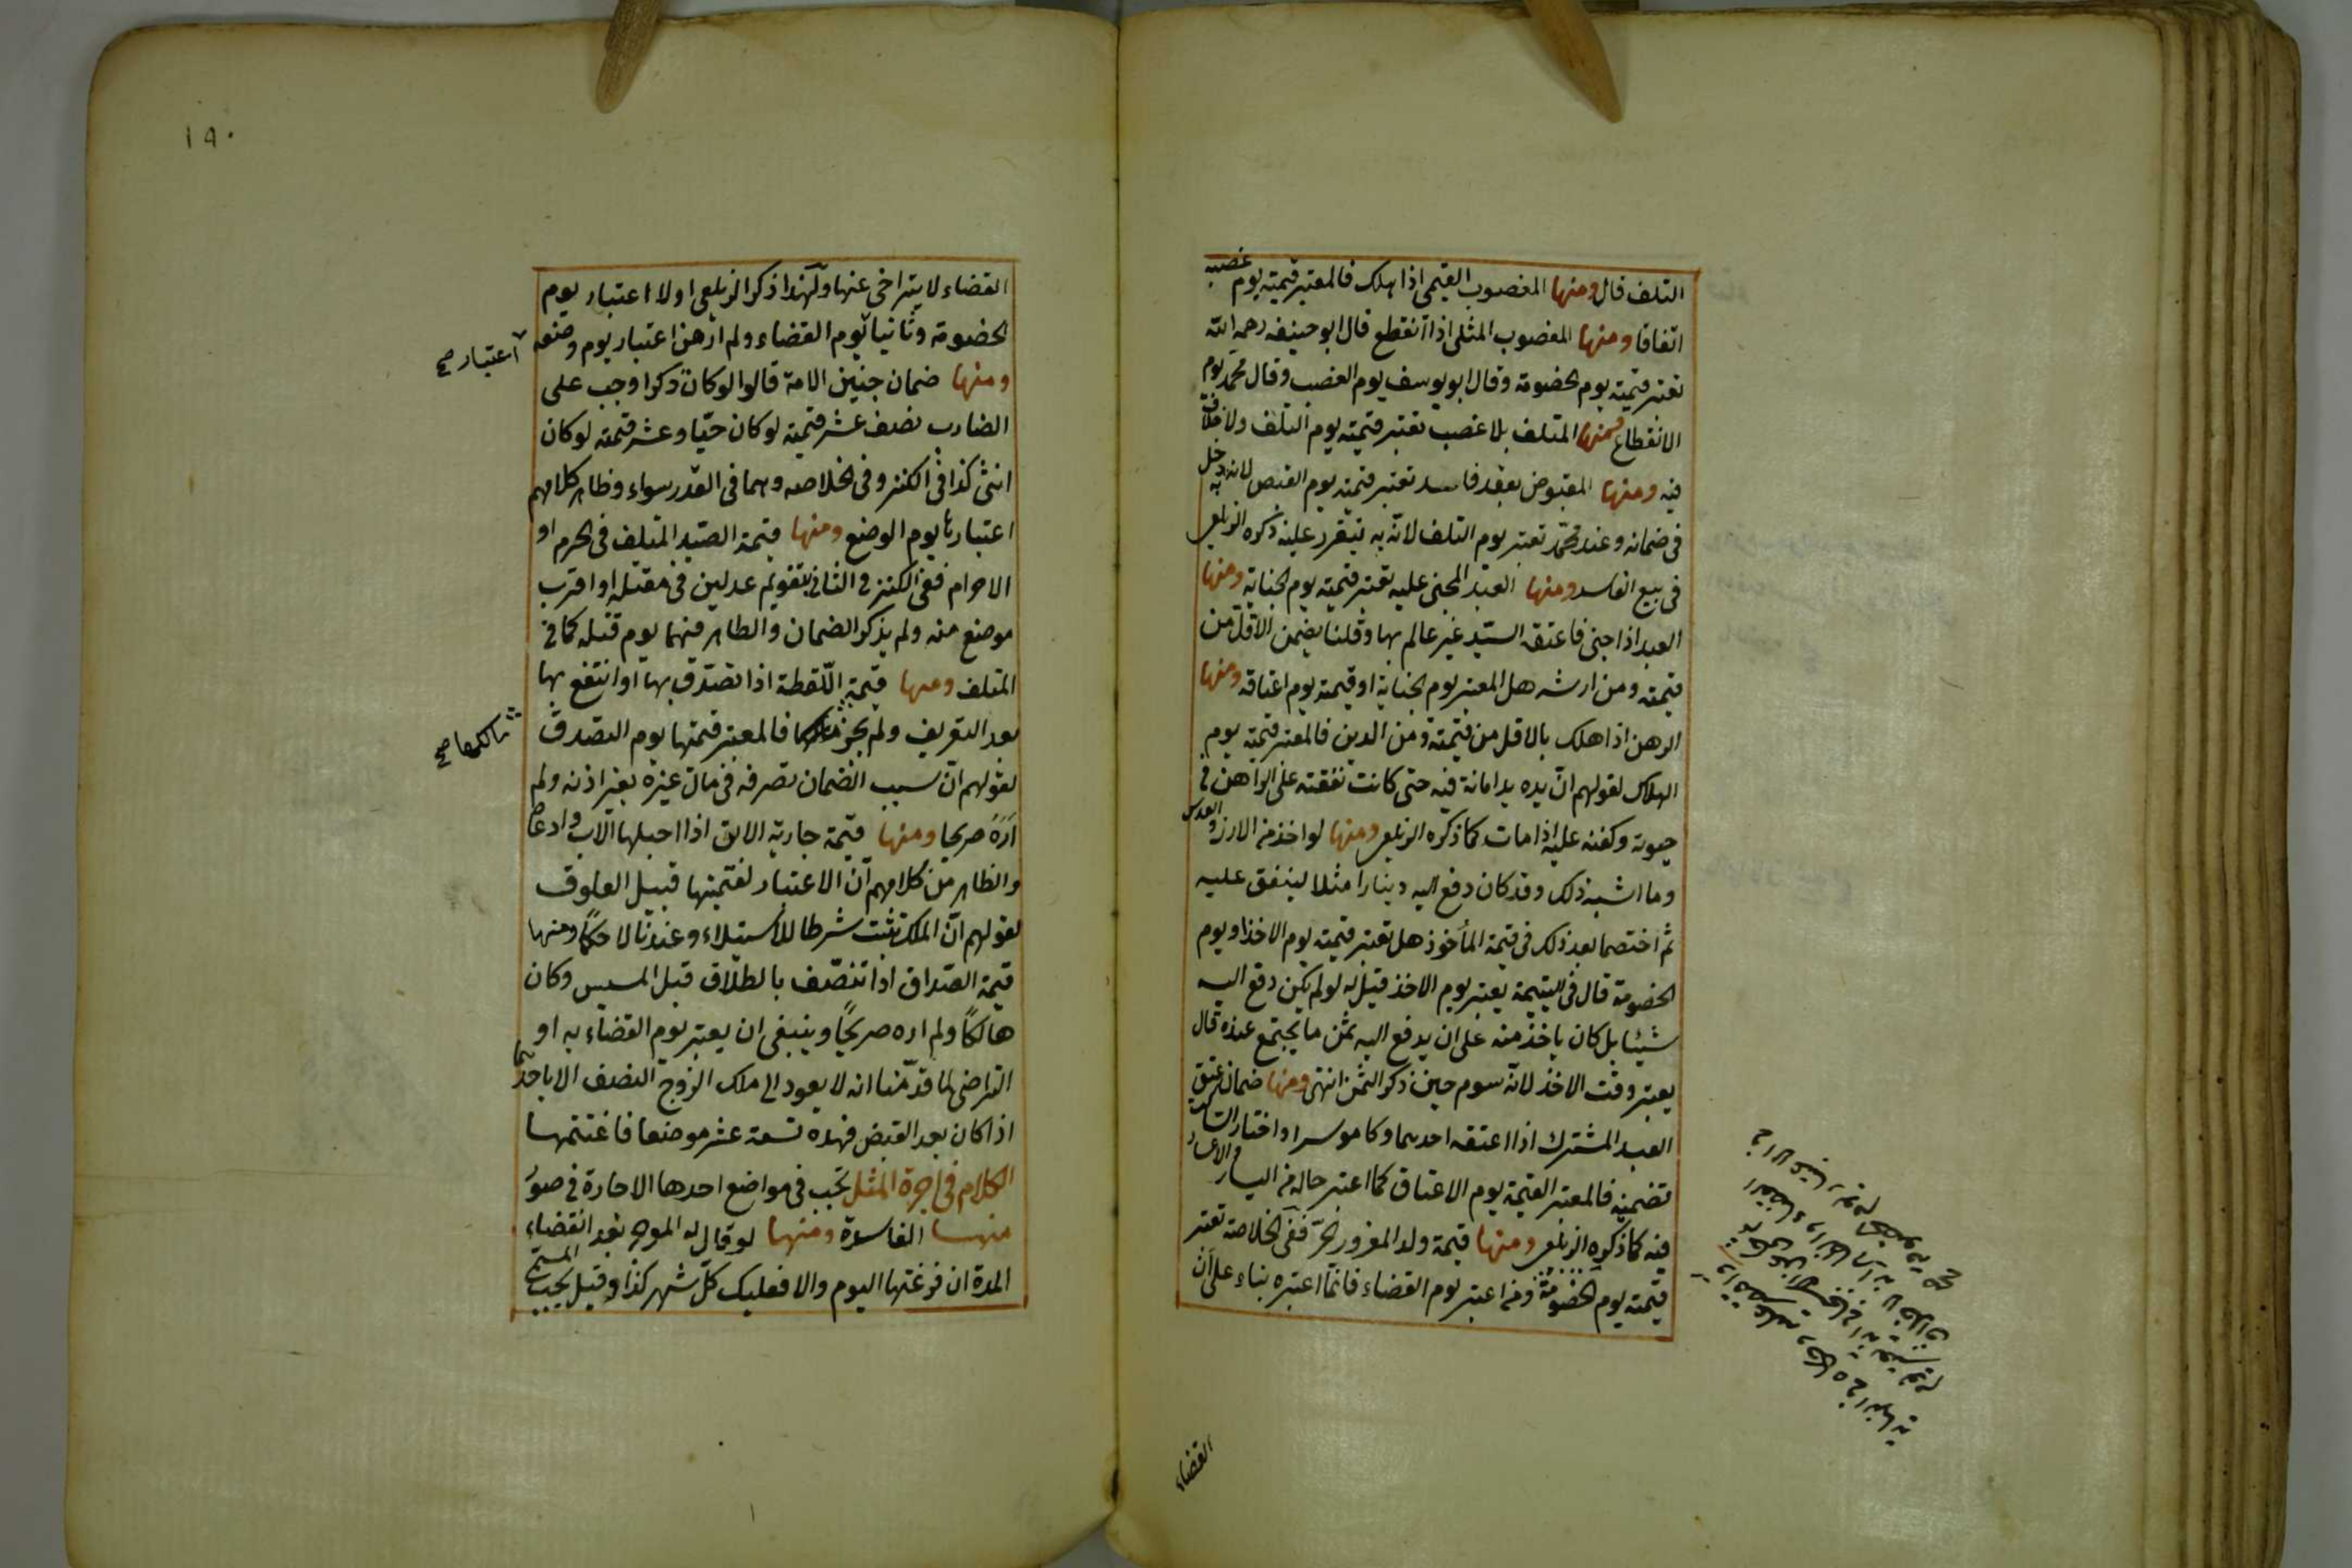 التلف قال ومنها المغصوب القيمى اذا هلك فالمعتبر قيمته يوم غصبه
اتفاقا ومنها المغصوب المثلى اذا انقطع قال ابو حنيفه رحمه الله
تعتبر قيمته يوم الخصومة وقال ابو يوسف يوم الغصب وقال محمد يوم
الانقطاع ومنها المتلف بلا غصب تعتبر قيمته يوم التلف ولا خلاف
فيه ومنها المقبوض بعقد فاسد تعتبر قيمته يوم القبض لانه به دخل
فى ضمانه وعند محمد تعتبر يوم التلف لانه به يتقرر عليه ذكره الزيلعى
فى بيع الفاسد ومنها العبد المجنى عليه تعتبر قيمته يوم الجناية ومنها
العبد اذا جنى فاعتقه السيد غير عالم بها وقلنا يضمن الاقل من
قيمته ومن ارشه هل المعتبر يوم الجناية او قيمته يوم اعتاقه ومنها
الرهن اذا هلك بالاقل من قيمته ومن الدين فالمعتبر قيمته يوم
الهلاك لقولهم ان يده يد امانة فيه حتى كانت نفقته على الراهن فى
حيوته وكفنه عليه اذا مات كما ذكره الزيلعى ومنها لو اخذ من الارز والعدس
وما اشبه ذلك وقد كان دفع اليه دينارا مثلا لينفق عليه
ثم اختصما بعد ذلك فى قيمة المأخوذ هل تعتبر قيمته يوم الاخذ او يوم
الخصومة قال فى اليتيمة يعتبر يوم الاخذ قيل له لو لم يكن دفع اليه
شيئا بل كان ياخذ منه على ان يدفع اليه ثمن ما يجتمع عنده قال
يعتبر وقت الاخذ لانه سوم حين ذكر الثمن انتهى ومنها ضمان عتق
العبد المشترك اذا اعتقه احدهما وكا موسرا واختار الساكت
تضمينه فالمعتبر القيمة يوم الاعتاق كما اعتبر حاله من اليسار والاعسار
فيه كما ذكره الزيلعى ومنها قيمة ولد المغرور الحر ففى الخلاصة تعتبر
قيمته يوم الخصومة ومن اعتبر يوم القضاء فانما اعتبره بناء على ان
القضاء
١٩٠
القضاء لا يتراخى عنها ولهذا ذكر الزيلعى اولا اعتبار يوم
الخصومة وثانيا يوم القضاء ولم ار من اعتبار يوم وضعه
اعتبار صح
ومنها ضمان جنين الامة قالوا لو كان ذكرا وجب على
الضارب نصف عشر قيمته لو كان حيا وعشر قيمته لو كان
انثى كذا فى الكنز وفى الخلاصه وهما فى القدر سواء وظاهر كلامهم
اعتبارها يوم الوضع ومنها قيمة الصيد المتلف فى الحرم او
الاحرام ففى الكنز فى الثانى بتقويم عدلين فى مقتله او اقرب
موضع منه ولم يذكر الضمان والظاهر فيهما يوم قتله كما فى
المتلف ومنها قيمة اللقطة اذا تصدق بها او انتفع بها
بعد التعريف ولم يجز مالكها فالمعتبر قيمتها يوم التصدق
مالكها صح
لقولهم ان سبب الضمان تصرفه فى مال غيره بغير اذنه ولم
اره صريحا ومنها قيمة جارية الابن اذا احبلها الاب وادعاه
والظاهر من كلامهم ان الاعتبار لقيمتها قبيل العلوق
لقولهم ان الملك يثبت شرطا للاستيلاء وعندنا لا حكما ومنها
قيمة الصداق اذا تنصف بالطلاق قبل المسيس وكان
هالكا ولم اره صريحا وينبغى ان يعتبر يوم القضاء به او
التراضى لما قدمنا انه لا يعود الى ملك الزوج النصف الا باحدهما
اذا كان بعد القبض فهذه تسعة عشر موضعا فاغتنمها
الكلام فى اجرة المثل تجب فى مواضع احدها الاجارة فى صور
منها الفاسدة ومنها لو قال له الموجر بعد انقضاء
المدة ان فرغتها اليوم والا فعليك كل شهر كذا وقيل يجب المسمى